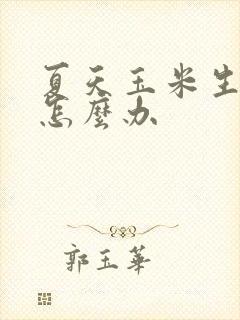 夏天玉米生
怎麼办
郭玉華